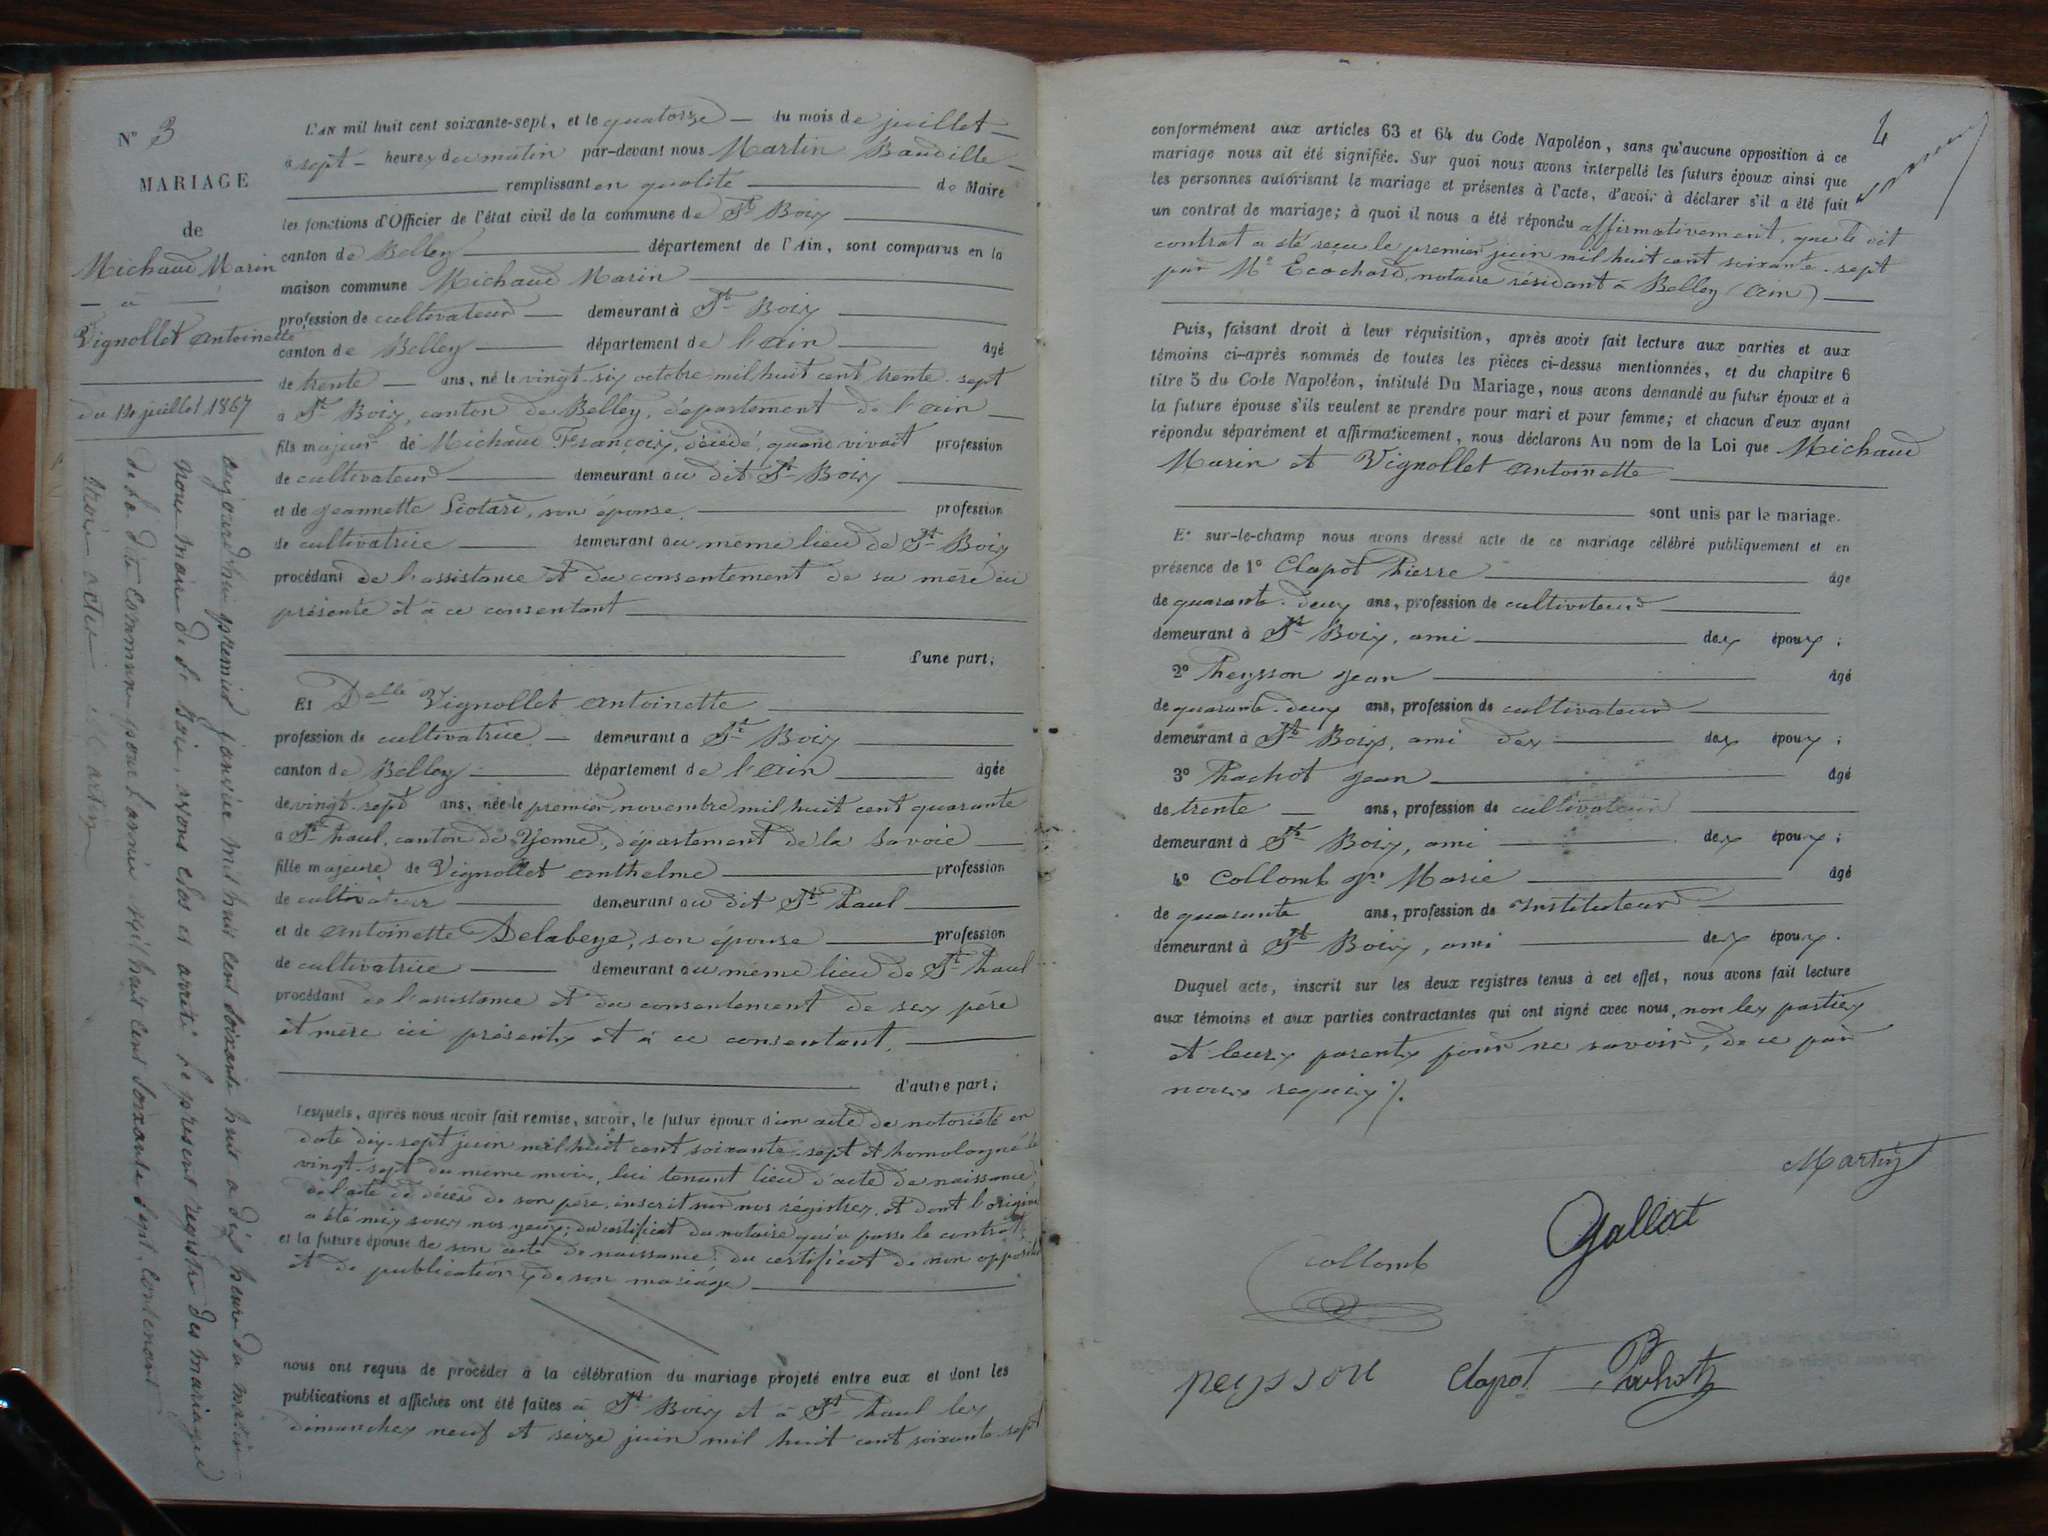 N° 3
MARIAGE
de
Michaud Marin
— à —
Vignollet Antoinette
du 14 juillet 1867
L'AN mil huit cent soixante-sept, et le quatorze — du mois de juillet —
à sept — heures du matin par-devant nous Martin Baudille —
remplissant en qualité de Maire
les fonctions d'Officier de l'état civil de la commune de St Boix
canton de Belley département de l'Ain, sont comparus en la
maison commune Michaud Marin
profession de cultivateur demeurant à St Boix
canton de Belley département de l'ain âgé
de trente — ans, né le vingt-six octobre mil huit cent trente-sept
à St Boix, canton de Belley, département de l'ain —
fils majeur de Michaud François, décédé, quand vivait profession
de cultivateur demeurant au dit St Boix
et de Jeannette Liotard, son épouse, profession
de cultivatrice demeurant au même lieu de St Boix
procédant de l'assistance et du consentement de sa mère ici
présente et à ce consentant
d'une part;
Et Delle Vignollet Antoinette
profession de cultivatrice — demeurant à St Boix
canton de Belley département de l'ain âgée
de vingt-sept ans, née le premier novembre mil huit cent quarante
à St Paul, canton de Yenne, département de la Savoie
fille majeure de Vignollet Anthelme profession
de cultivateur demeurant au dit St Paul
et de Antoinette Delabeye, son épouse profession
de cultivatrice demeurant au même lieu de St Paul
procédant de l'assistance et du consentement de ses père
et mère ici présents et à ce consentant,
d'autre part;
Lesquels, après nous avoir fait remise, savoir, le futur époux d'un acte de notoriété en
date dix-sept juin mil huit cent soixante-sept et homologué le
vingt-sept du même mois, lui tenant lieu d'acte de naissance,
de l'acte de décès de son père, inscrit sur nos régistres et dont l'origine
a été mis sous nos yeux; du certificat du notaire qui a passé le contrat;
et la future épouse de son acte de naissance; du certificat de non opposition
et de publications de son mariage
nous ont requis de procéder à la célébration du mariage projeté entre eux et dont les
publications et affiches ont été faites à St Boix et à St Paul les
dimanches neuf et seize juin mil huit cent soixante-sept
aujourd'hui premier janvier mil huit cent soixante huit a dix heure du matin
nous maire de St Boix, avons clos et arrêté le présent registre des mariages
de la dite commune pour l'année mil huit cent soixante sept, contenant
trois actes. Martin
4
conformément aux articles 63 et 64 du Code Napoléon, sans qu'aucune opposition à ce
mariage nous ait été signifiée. Sur quoi nous avons interpellé les futurs époux ainsi que
les personnes autorisant le mariage et présentes à l'acte, d'avoir à déclarer s'il a été fait
un contrat de mariage; à quoi il nous a été répondu affirmativement, que le dit
contrat a été reçu le premier juin mil huit cent soixante-sept
par Me Ecochard, notaire résidant à Belley (Ain) —
Puis, faisant droit à leur réquisition, après avoir fait lecture aux parties et aux
témoins ci-après nommés de toutes les pièces ci-dessus mentionnées, et du chapitre 6
titre 5 du Code Napoléon, intitulé Du Mariage, nous avons demandé au futur époux et à
la future épouse s'ils veulent se prendre pour mari et pour femme; et chacun d'eux ayant
répondu séparément et affirmativement, nous déclarons Au nom de la Loi que Michaud
Marin et Vignollet Antoinette
sont unis par le mariage.
Et sur-le-champ nous avons dressé acte de ce mariage célébré publiquement et en
présence de 1° Clapot Pierre âgé
de quarante-deux ans, profession de cultivateur
demeurant à St Boix, ami des époux;
2° Peysson Jean âgé
de quarante-deux ans, profession de cultivateur
demeurant à St Boix, ami des des époux;
3° Pachot Jean âgé
de trente — ans, profession de cultivateur
demeurant à St Boix, ami des époux;
4° Collomb Jn Marie âgé
de quarante ans, profession de Instituteur
demeurant à St Boix, ami des époux.
Duquel acte, inscrit sur les deux registres tenus à cet effet, nous avons fait lecture
aux témoins et aux parties contractantes qui ont signé avec nous, non les parties
et leurs parents pour ne savoir, de ce par
nous requis ./.
Martin
Gallat
Collomb
peysson Clapot Pachot